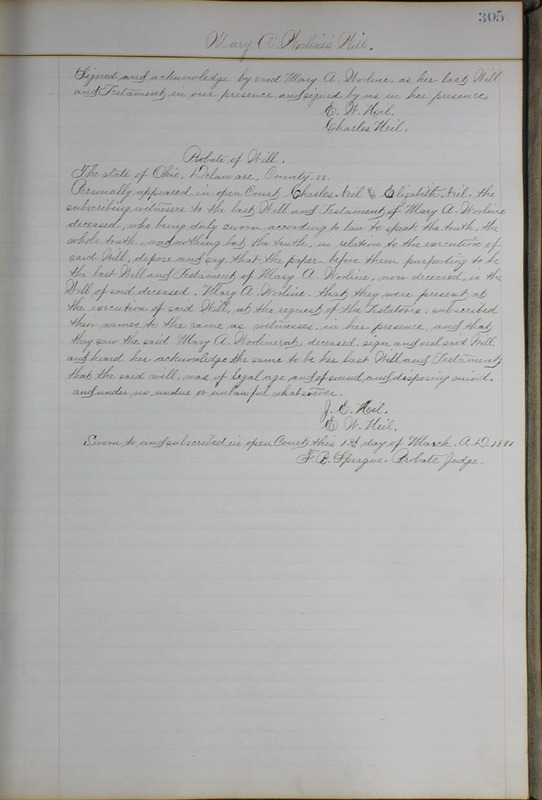 305
Mary A. Worline's Will.
Signed and acknowledge by said Mary A. Worline as her last Will
and Testament in our presence and signed by us in her presence
E. W. Neil.
Charles Neil.
Probate of Will.
The state of Ohio, Delaware, County, ss.
Personally appeared in open Court, Charles Neil & Elizabeth Neil, the
subscribing witnesses to the last Will and Testament of Mary A. Worline
deceased, who being duly sworn according to law to speak the truth, the
whole truth, and nothing but the truth, in relation to the execution of
said Will, depose and say that the paper before them purporting to be
the last Will and Testament of Mary A. Worline, now deceased, is the
Will of said deceased. Mary A. Worline. that they were present, at
the execution of said Will, at the request of the Testatrix, subscribed
their names to the same as witnesses, in her presence, and that
they saw the said Mary A. deceased, sign and seal said Will
and heard her acknowledge the same to be her last Will and Testament
that the said will, was of legal age and of sound and disposing mind.
and under no undue or unlawful whatsoever.
J. C. Neil.
E. W. Neil.
Sworn to and subscribed in open Court, this 1st day of March. A.D. 1881
F. B. Sprague. Probate Judge.